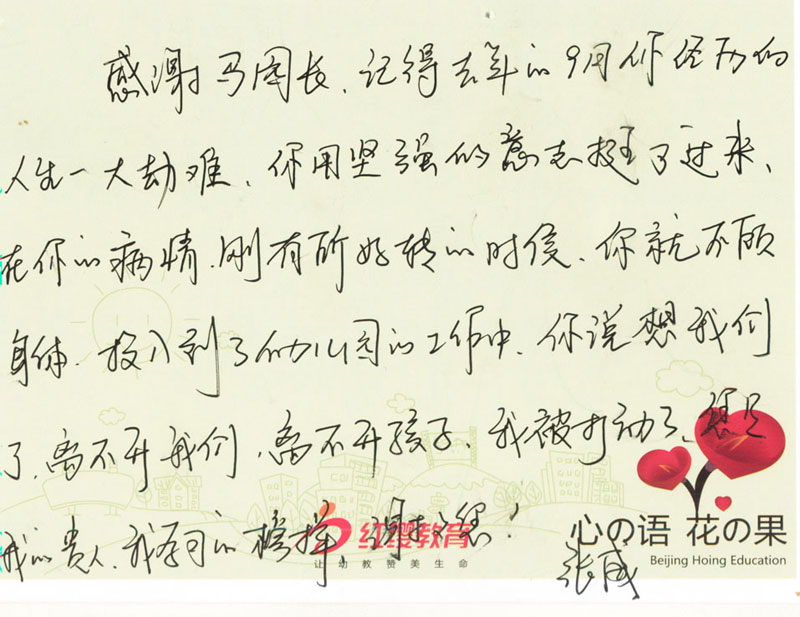 感谢马园长、记得去年的9月你经历的
人生一大劫难、你用坚强的意志挺了过来、
在你的病情刚有所好转的时侯、你就不顾
身体、投入到了幼儿园的工作中、你说想我们
了、离不开我们、离不开孩子、我被打动了、您是
我的贵人、我学习的榜样 谢谢您！
张威
红缨教育
让幼教赞美生命
心の语 花の果
Beijing Hoing Education